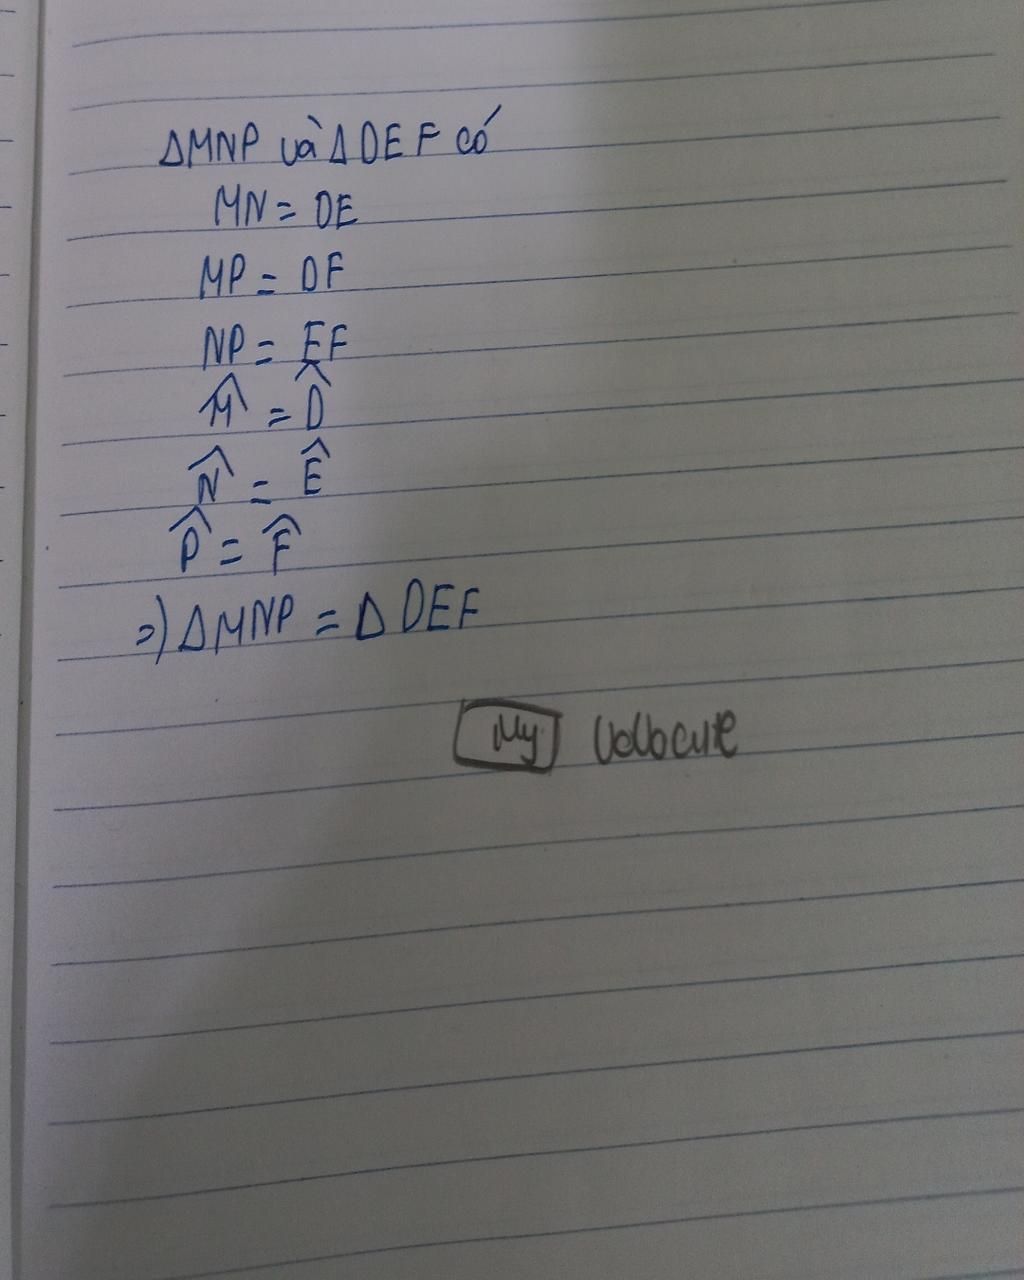 ΔMNP và ΔDEF có
MN = DE
MP = DF
NP = EF
M̂ = D̂
N̂ = Ê
P̂ = F̂
=) ΔMNP = Δ DEF
My